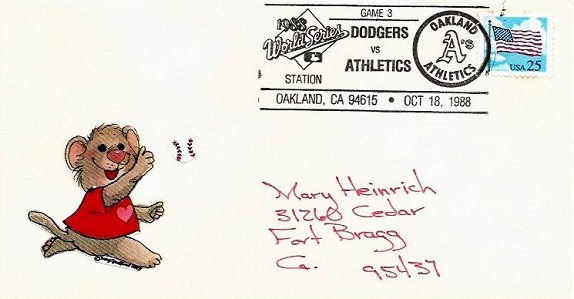 GAME 3
1988
World Series
STATION
DODGERS
VS
ATHLETICS
OAKLAND
A's
ATHLETICS
USA 25
OAKLAND, CA 94615 • OCT 18, 1988
Mary Heinrich
31260 Cedar
Fort Bragg
Ca. 95437